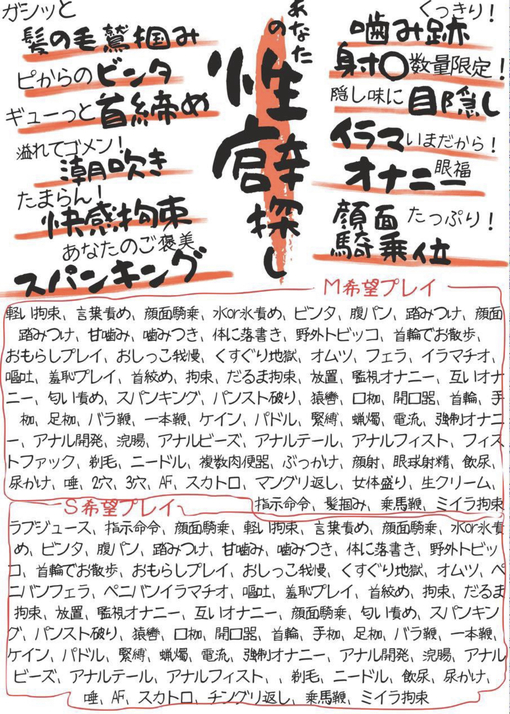 あなたの
性癖探し
ガシッと
髪の毛鷲掴み
ピからのビンタ
ギューっと首締め
溢れてゴメン!
潮吹き
たまらん!
快感拘束
あなたのご褒美
スパンキング
くっきり!
噛み跡
射〇数量限定!
隠し味に目隠し
イラマいまだから!
オナニー眼福
顔面たっぷり!
騎乗位
M希望プレイ
軽い拘束、言葉責め、顔面騎乗、水or氷責め、ビンタ、腹パン、踏みつけ、顔面
踏みつけ、甘噛み、噛みつき、体に落書き、野外トビッコ、首輪でお散歩、
おもらしプレイ、おしっこ我慢、くすぐり地獄、オムツ、フェラ、イラマチオ、
嘔吐、羞恥プレイ、首絞め、拘束、だるま拘束、放置、監視オナニー、互いオナ
ニー、匂い責め、スパンキング、パンスト破り、猿轡、口枷、開口器、首輪、手
枷、足枷、バラ鞭、一本鞭、ケイン、パドル、緊縛、蝋燭、電流、強制オナニ
ー、アナル開発、浣腸、アナルビーズ、アナルテール、アナルフィスト、フィス
トファック、剃毛、ニードル、複数肉便器、ぶっかけ、顔射、眼球射精、飲尿、
尿かけ、唾、2穴、3穴、AF、スカトロ、マングリ返し、女体盛り、生クリーム、
指示命令、髪掴み、乗馬鞭、ミイラ拘束
S希望プレイ
ラブジュース、指示命令、顔面騎乗、軽い拘束、言葉責め、顔面騎乗、水or氷責
め、ビンタ、腹パン、踏みつけ、甘噛み、噛みつき、体に落書き、野外トビッ
コ、首輪でお散歩、おもらしプレイ、おしっこ我慢、くすぐり地獄、オムツ、ペ
ニバンフェラ、ペニバンイラマチオ、嘔吐、羞恥プレイ、首絞め、拘束、だるま
拘束、放置、監視オナニー、互いオナニー、顔面騎乗、匂い責め、スパンキン
グ、パンスト破り、猿轡、口枷、開口器、首輪、手枷、足枷、バラ鞭、一本鞭、
ケイン、パドル、緊縛、蝋燭、電流、強制オナニー、アナル開発、浣腸、アナル
ビーズ、アナルテール、アナルフィスト、、剃毛、ニードル、飲尿、尿かけ、
唾、AF、スカトロ、チングリ返し、乗馬鞭、ミイラ拘束